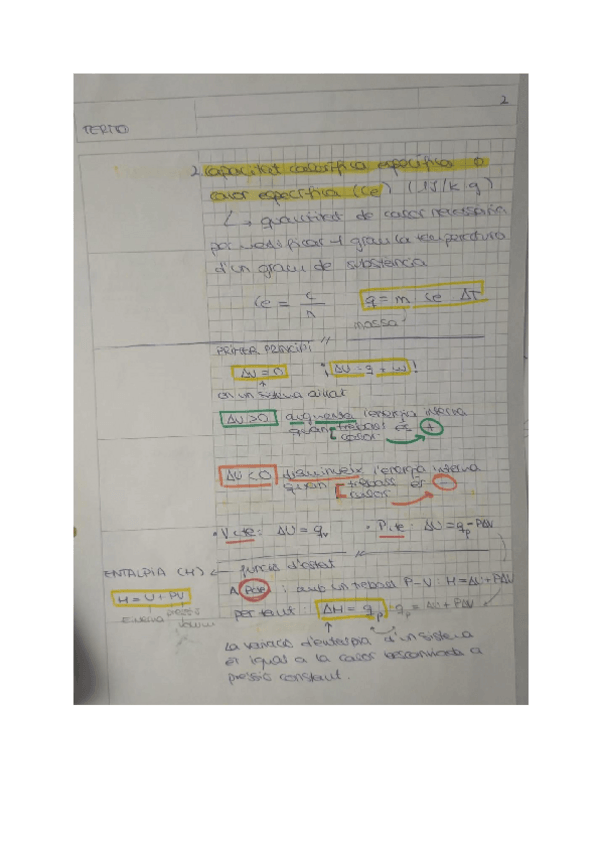 2
TERMO
2. Capacitat calorífica específica o
calor específica (Ce) (1J/K·g)
↳ quantitat de calor necessària
per modificar 1 grau la temperatura
d'un gram de substància
Ce = C/n
q = m Ce ΔT
massa
PRIMER PRINCIPI
ΔU = 0
¡ ΔU = q + w !
en un sistema aïllat
ΔU > 0 augmenta l'energia interna
quan treball és +
calor
ΔU < 0 disminueix l'energia interna
quan treball és −
calor
• V cte: ΔU = qv
• P cte: ΔU = qp − PΔV
ENTALPIA (H) ← funció d'estat
A Pcte : amb un treball P-V: H = ΔU + PΔV
H = U + PV
per tant: ΔH = qp qp = ΔU + PΔV
E interna pressió volum
La variació d'entalpia d'un sistema
és igual a la calor bescanviada a
pressió constant.